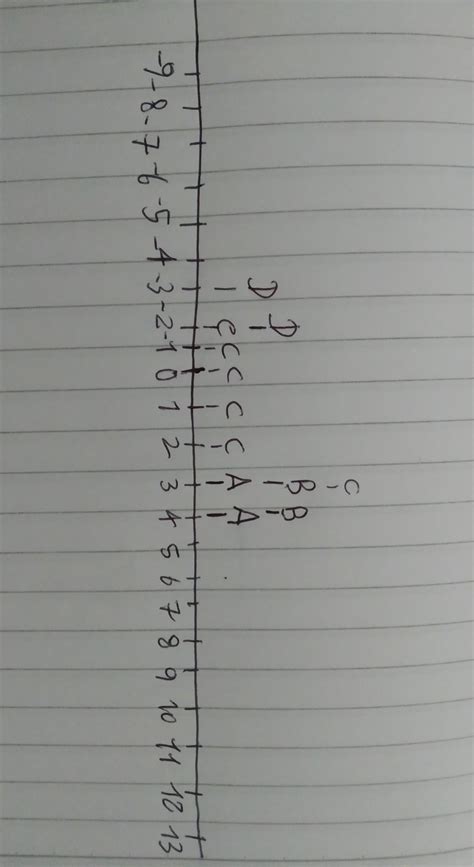 C
D B B
D
C C C C C A A
-9 -8 -7 -6 -5 -4 -3 -2 -1 0 1 2 3 4 5 6 7 8 9 10 11 12 13